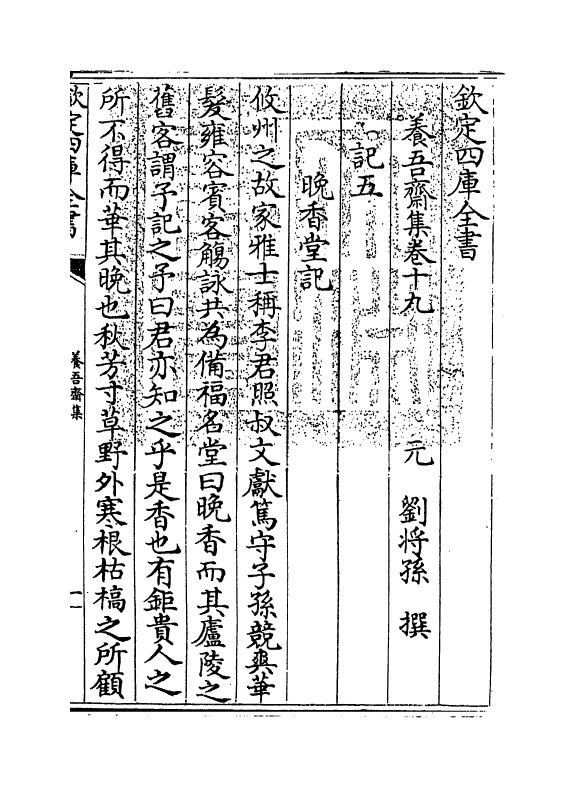 欽定四庫全書
養吾齋集卷十九
元 劉將孫 撰
記五
晚香堂記
攸州之故家雅士稱李君照叔文獻篤守子孫競爽華
髮雍容賓客觴詠共為備福名堂曰晚香而其廬陵之
舊客謂予記之予曰君亦知之乎是香也有鉅貴人之
所不得而華其晚也秋芳寸草野外寒根枯槁之所顧
欽定四庫全書
養吾齋集
一